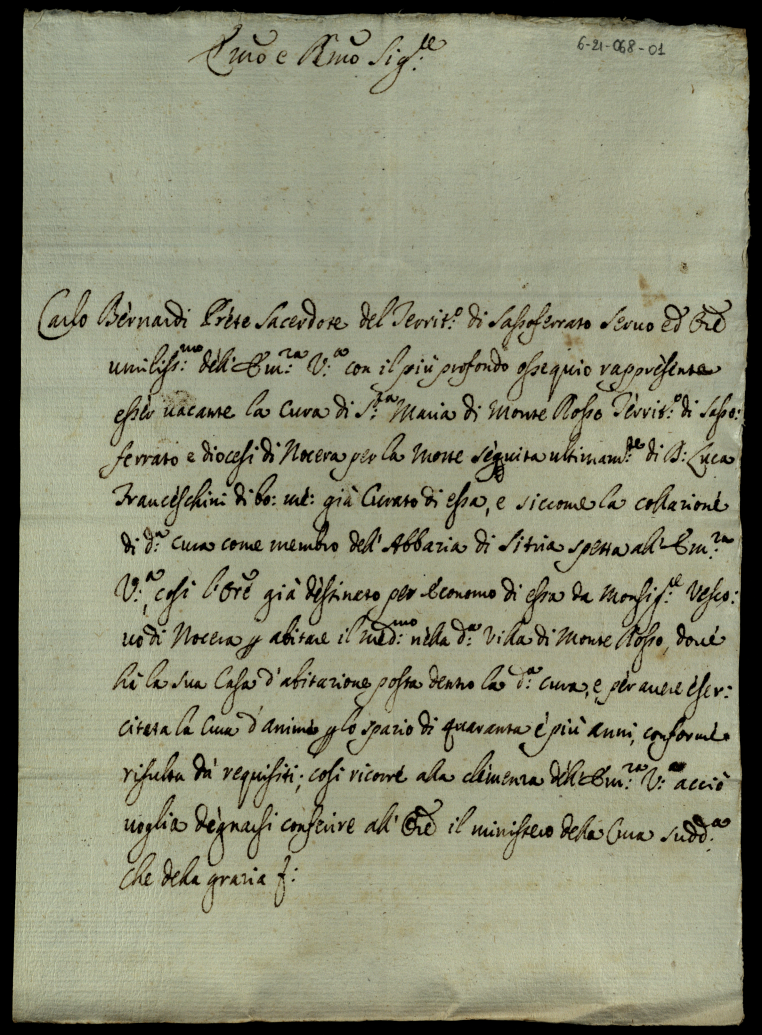 Emo e Rmo Sig.re
6-21-068-01
Carlo Bernardi Prete Sacerdote del Territ.o di Sassoferrato servo ed Ore
umiliss:mo dell' Em:za V:a con il più profondo ossequio rappresenta
esser vacante la Cura di S:ta Maria di Monte Rosso Territ:o di Sasso:
ferrato e diocesi di Nocera per la morte seguita ultimam:te di D: Luca
Franceschini di bo: me: già Curato di essa, e siccome la collazione
di d:a cura come membro dell' Abbazia di Sitria spetta all' Em:za
V:a, così l'Ore già destinato per Economo di essa da Monsig:re Vesco:
vo di Nocera p abitare il med:mo nella d:a Villa di Monte Rosso, dove
hà la sua Casa d'abitazione posta dentro la d:a cura, e per avere eser:
citata la Cura d'anime p lo spazio di quaranta e più anni, conforme
risulta da' requisiti; così ricorre alla clemenza dell' Em:za V:a acciò
voglia degnarsi conferire all' Ore il ministero della Cura sudd:a
che della grazia